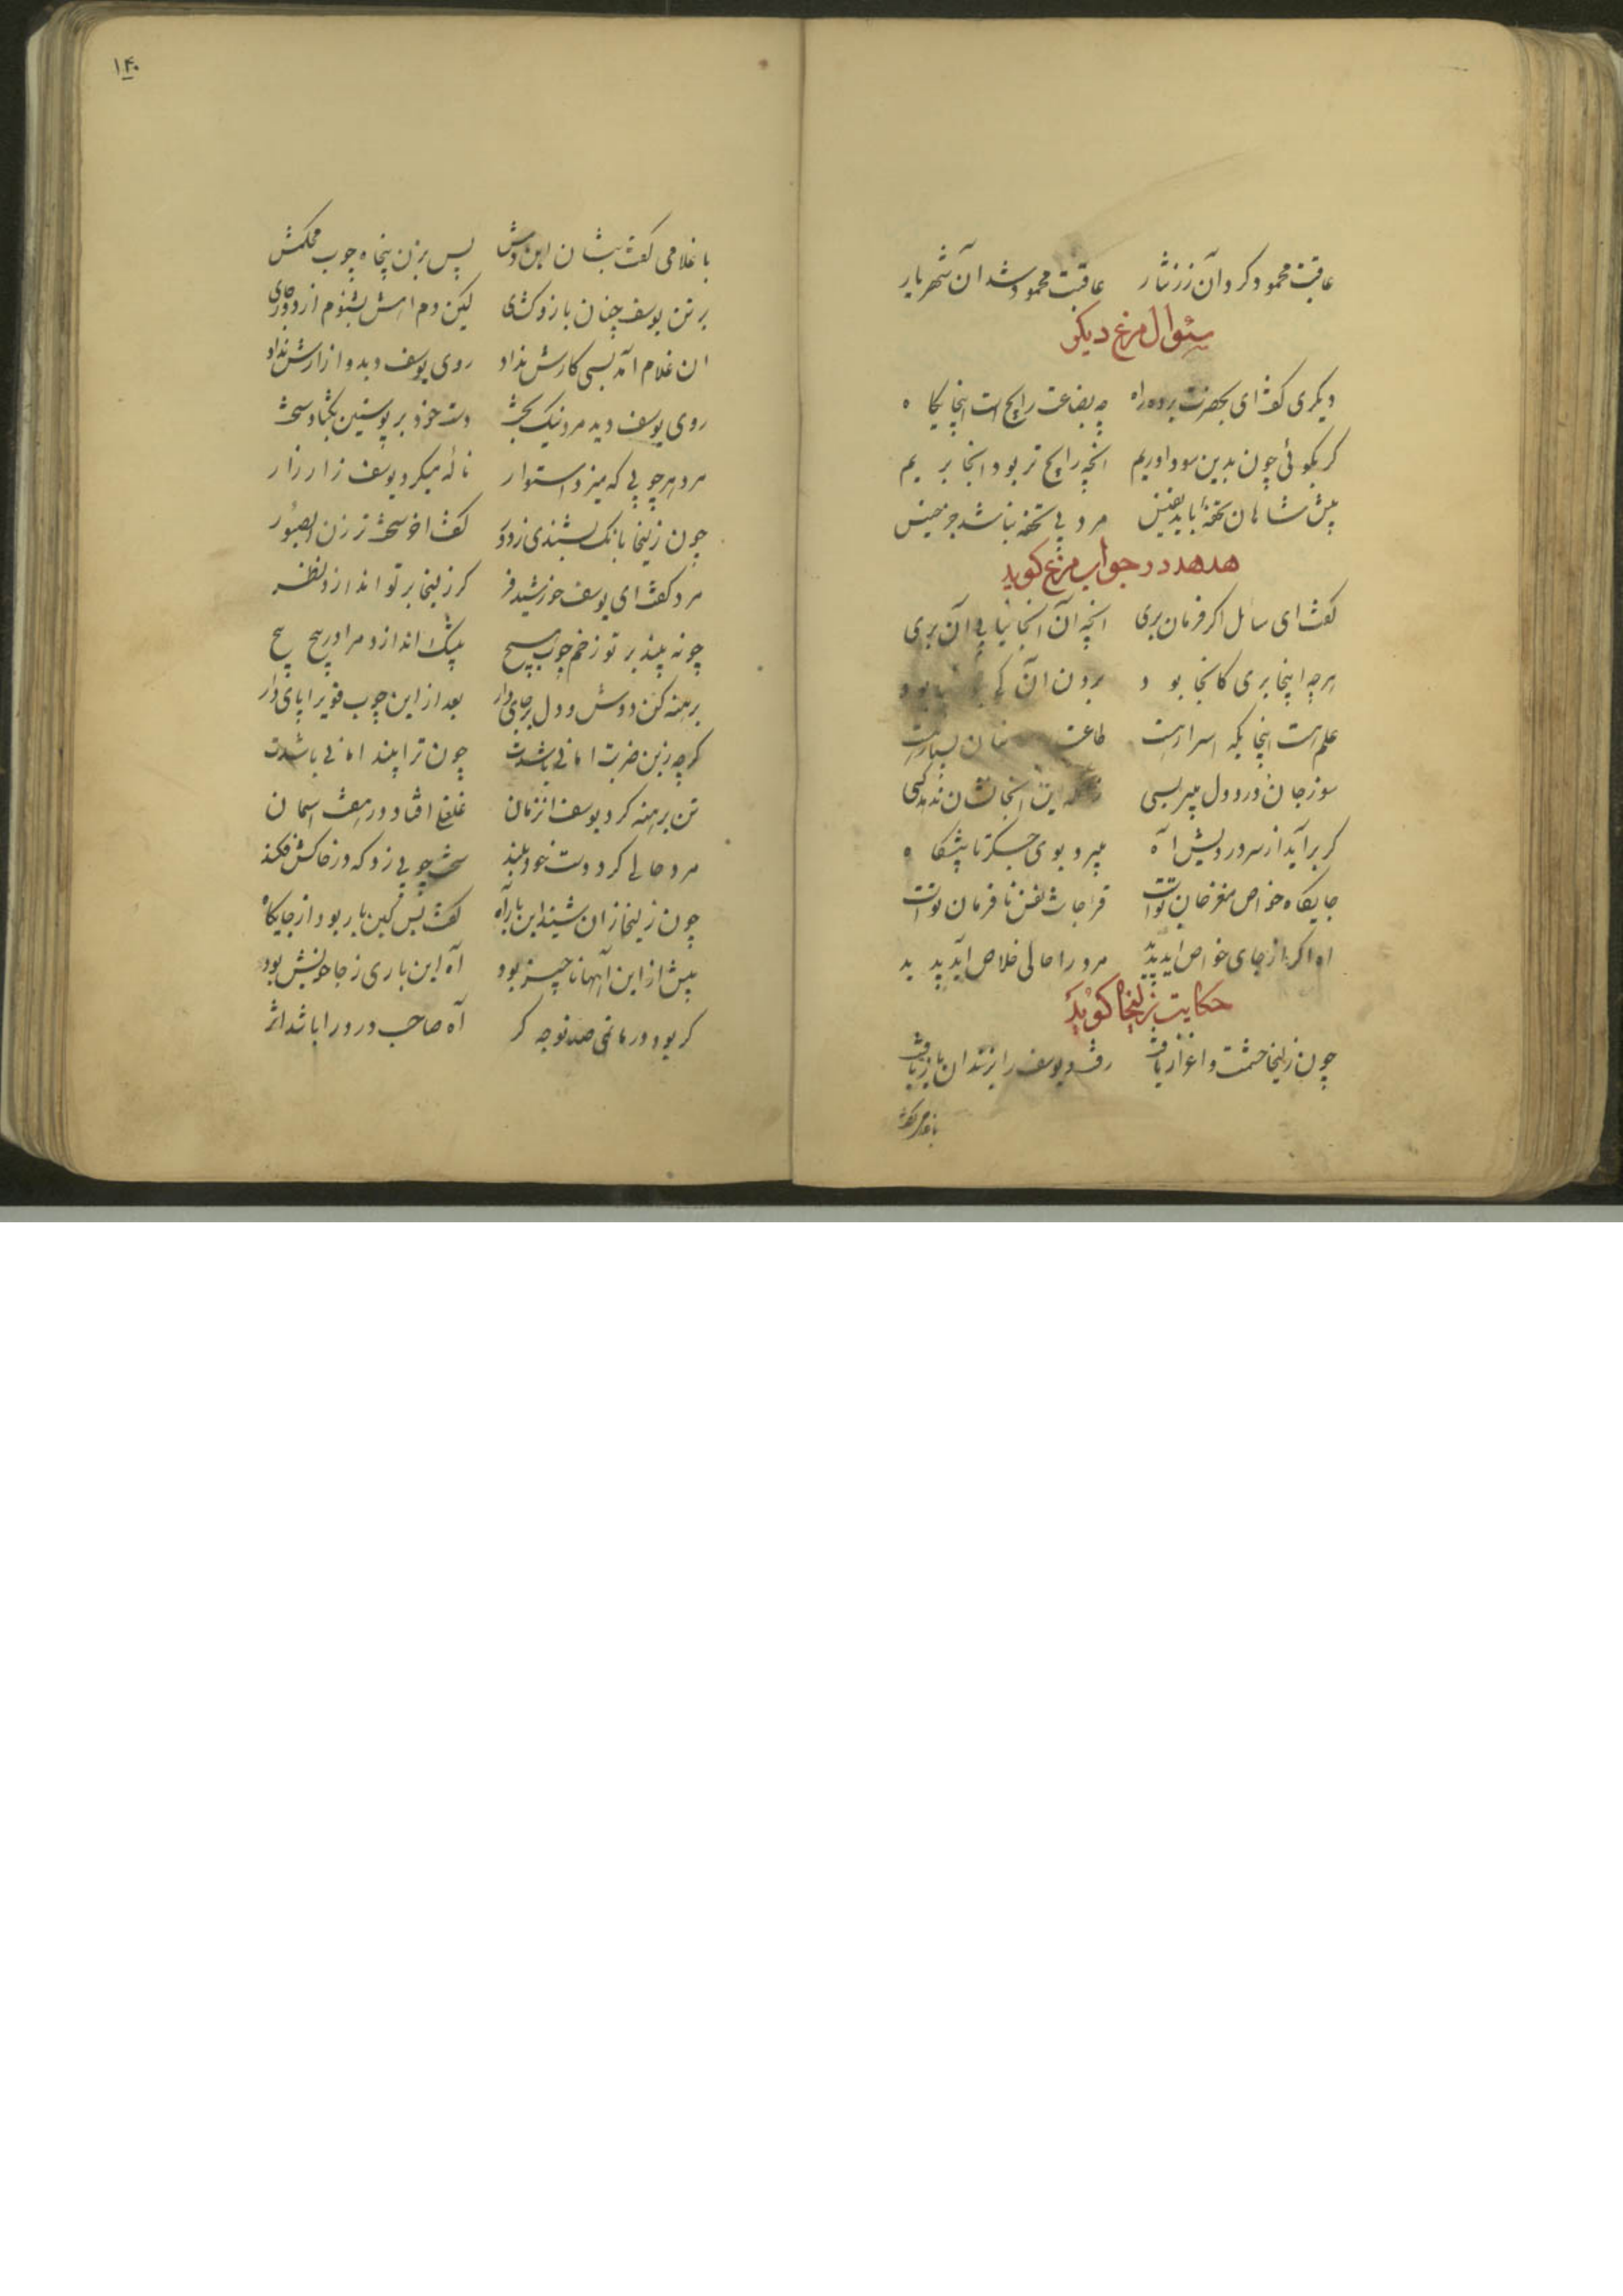 عاقبت محمود کرد آن زر نثار عاقبت محمود شد آن شهریار
سئوال مرغ دیکر
دیکری کفت ای بحضرت برده راه چه بضاعت رایج است اینجایکاه
کر بکوئی چون بدین سودا دریم انچه رایج تر بود انجا بریم
پیش شاهان تحفهٔ باید نفیس مرد بی تحفه نباشد جز خسیس
هدهد در جواب مرغ کوید
کفت ای سائل اکر فرمان بری انچه آن آنجا نیابی آن بری
هرچه اینجا بری کانجا بود بردن آن کی بود
علم هست اینجایکه اسرار هست طاعت بسیار هست
سوز جان و درد دل میبر بسی زانکه این آنجا نشان ندهد کسی
کر برآید از سر دردیش آه میبرد بوی جکر تا پیشکاه
جایکاه خواص مغز جان تواست قرا جات نفس نافرمان تواست
اه اکر از جای خواص اید پدید مرد را حالی خلاص آید پدید
حکایت زلیخا کوید
چون زلیخا حشمت و اعزاز یافت رفت و یوسف را بزندان باز یافت
با غلامی کفت
۱۴۰
با غلامی کفت بنشان این دمش پس بزن پنجاه چوب محکمش
بر تن یوسف چنان بازو کشای کین دم اهش بشنوم از دور جای
ان غلام آمد بسی کارش نداد روی یوسف دید و ازارش نداد
روی یوسف دید مرد نیک بخت دست خود بر پوستین بکشاد سخت
مرد هر چوبی که میزد استوار نالهٔ میکرد یوسف زار زار
چون زلیخا بانک بشنیدی ز دور کفت اخر سخت تر زن ای صبور
مرد کفت ای یوسف خورشید فر کر زلیخا بر تو اندازد نظر
چو نه بیند بر تو زخم چوب هیچ بیشک اندازد مرا در پیچ پیچ
برهنه کن دوش و دل بر جای دار بعد ازاین چوب قوی را پای دار
کرچه زین ضربت امانی باشدت چون ترا بیند امانی باشدت
تن برهنه کرد یوسف انزمان غلغلی افتاد در هفت اسمان
مرد حالی کرد دست خود بلند سخت چوبی زد که در خاکش فکند
چون زلیخا زان شنید این بار آه کفت بس کین بار بود از جایکاه
پیش از این آنها ناچیز بود آه این باری ز جا خویش بود
کر بود در ماتمی صد نوحه کر آه صاحب درد را باشد اثر